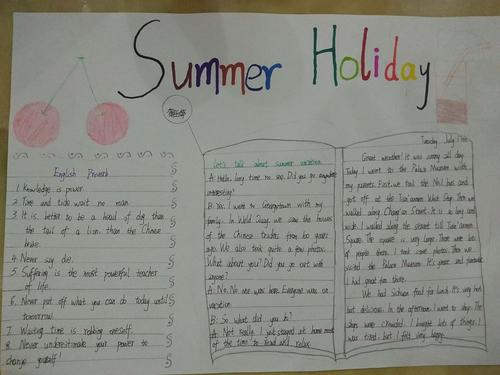 Summer Holiday
English Proverb
1. Knowledge is power.
2. Time and tide wait no man.
3. It is better to be a head of dog than
the tail of a lion than the Chinese
4. Never say die.
5. Suffering is the most powerful teacher
of life.
6. Never put off what you can do today until
tomorrow.
7. Wasting time is robbing oneself.
8. Never underestimate your power to
change yourself!
Let's talk about summer vacation
A: Hello, long time no see. Did you go anywhere
interesting?
B: Yes. I went to Georgetown with my
family. In Weld Quay, we saw the houses
of the Chinese traders from 100 years
ago. We also took quite a few photos.
What about you? Did you go out with
anyone?
A: No. No one was here. Everyone was on
vacation.
B: So what did you do?
A: Not really. I just stayed at home most
of the time to read and relax.
Tuesday, July 17th
Great weather! It was sunny all day.
Today I went to the Palace Museum with
my parents. First, we took the No.1 bus and
got off at the Tian'anmen West Stop. Then we
walked along Chang'an Street. It is a long and
wide. I walked along the street till Tian'anmen
Square. The square is very large. There were lots
of people there. I took some photos. Then we
visited the Palace Museum. It's great and fantastic
I had great fun there.
We had Sichuan food for lunch. It's very hot
but delicious. In the afternoon I went to shops. The
shops were crowded. I bought lots of things. I
was tired, but I felt very happy.